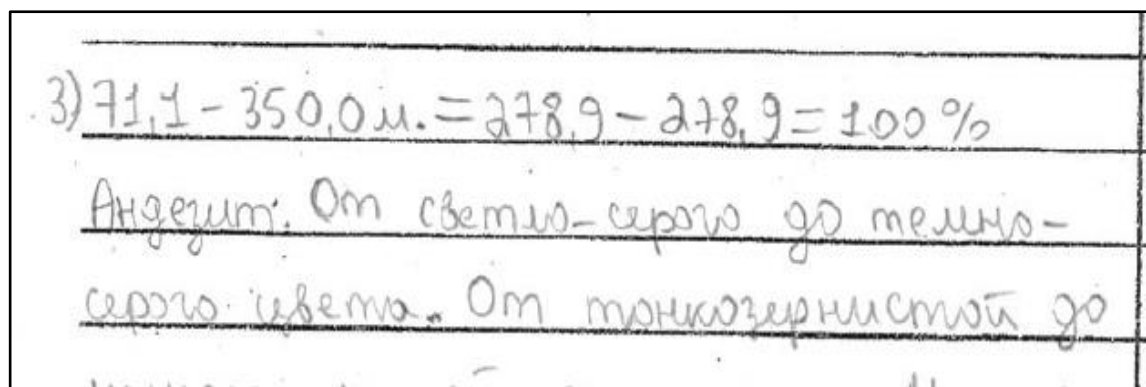 3) 71,1 - 350,0 м. = 278,9 - 278,9 = 100 %
Андезит. От светло-серого до темно-
серого цвета. От тонкозернистой до